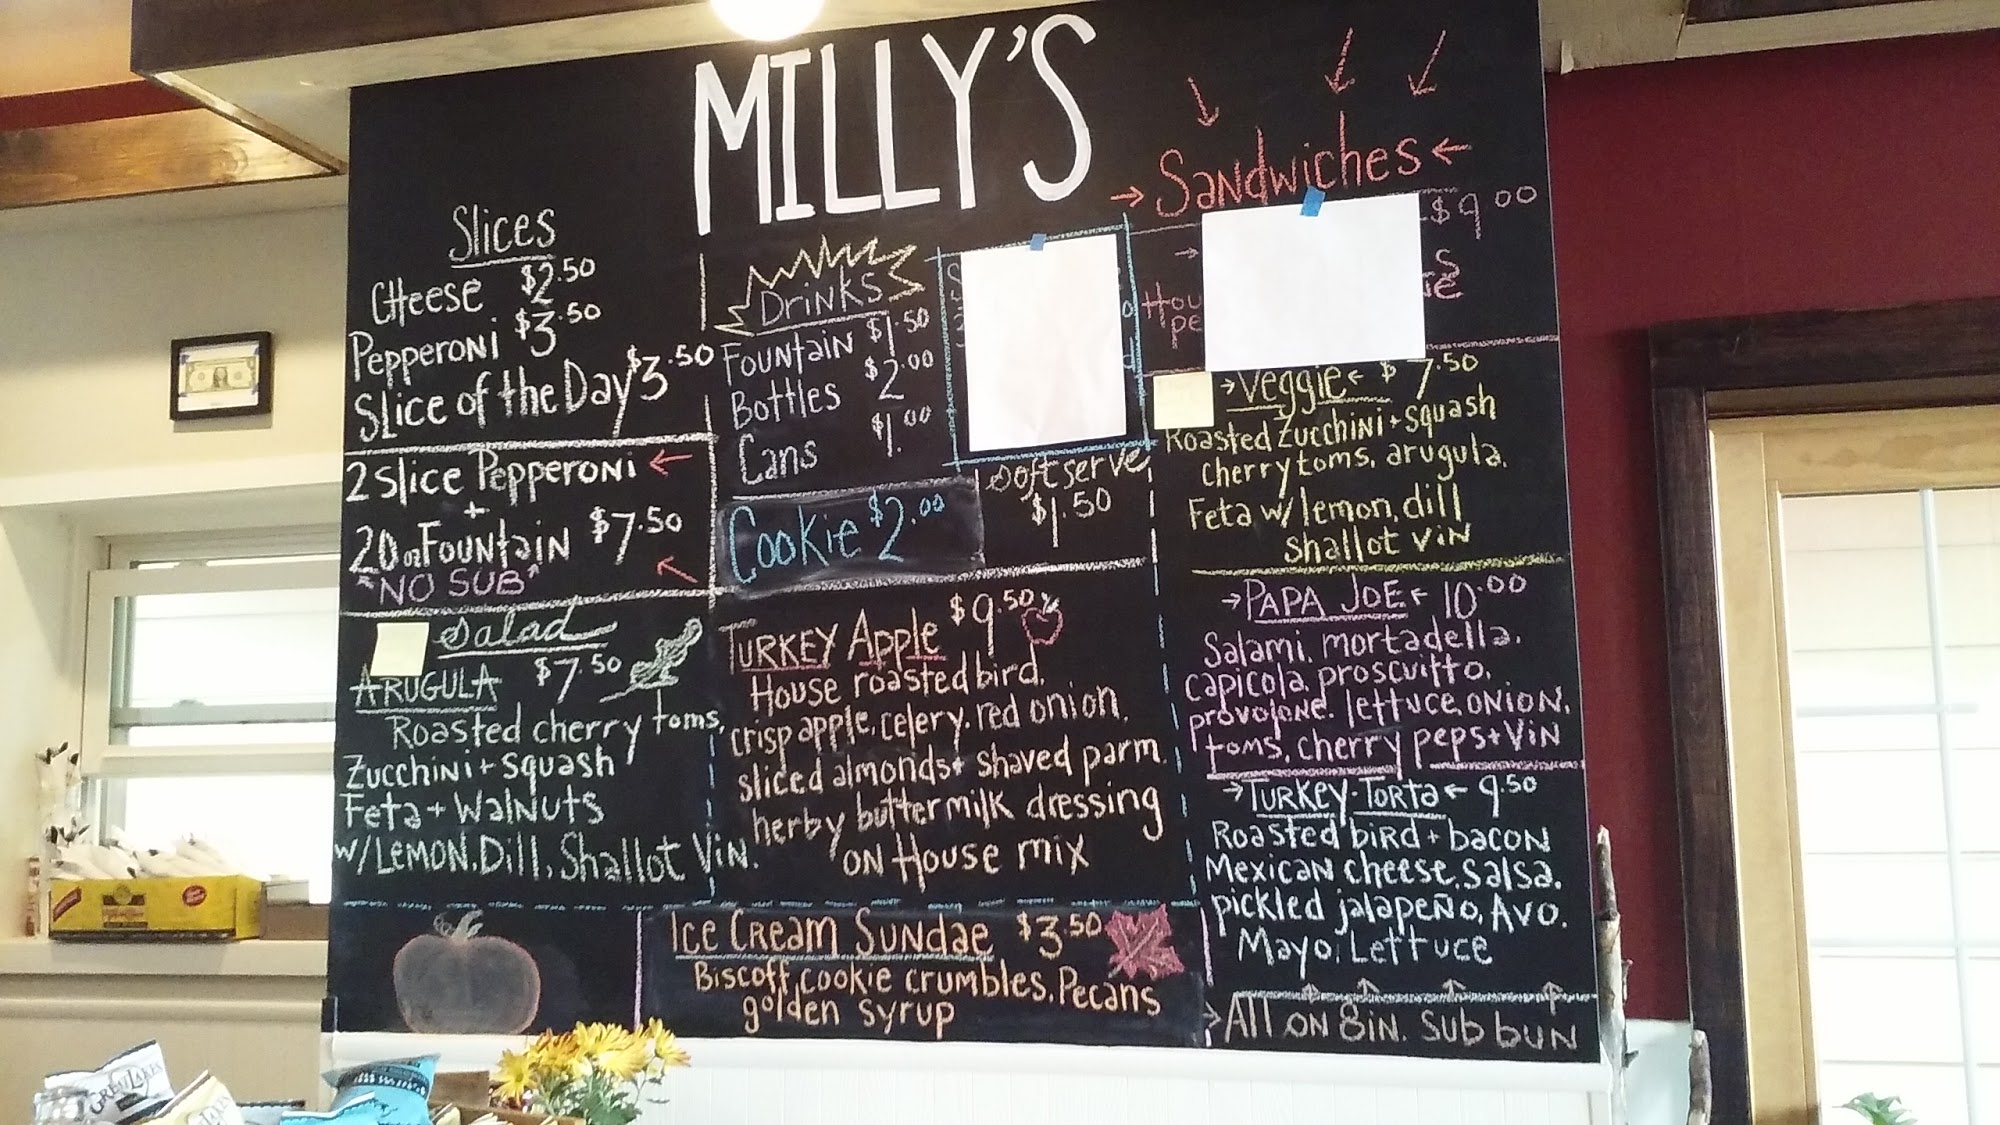 MILLY'S
Slices
Cheese $2.50
Pepperoni $3.50
Slice of the Day $3.50
2 Slice Pepperoni
+
20oz Fountain $7.50
"NO SUB"
Salad
ARUGULA $7.50
Roasted cherry toms,
Zucchini + squash
Feta + Walnuts
w/LEMON, Dill, Shallot Vin.
Drinks
Fountain $1.50
Bottles $2.00
Cans $1.00
Cookie $2.00
Soft serve
$1.50
TURKEY Apple $9.50
House roasted bird,
crisp apple, celery, red onion,
sliced almonds + shaved parm.
herby buttermilk dressing
on House mix
Ice Cream Sundae $3.50
Biscoff cookie crumbles, Pecans
golden syrup
→ Sandwiches ←
$9.00
→ Veggie ← $7.50
Roasted Zucchini + squash
cherry toms, arugula,
Feta w/ lemon, dill
shallot vin
→ PAPA JOE ← 10.00
Salami, mortadella,
capicola, proscuitto,
provolone, lettuce, onion,
toms, cherry peps + vin
→ Turkey Torta ← 9.50
Roasted bird + bacon
Mexican cheese, salsa,
pickled jalapeño, Avo.
Mayo, Lettuce
→ All on 8in. sub bun
GREAT LAKES